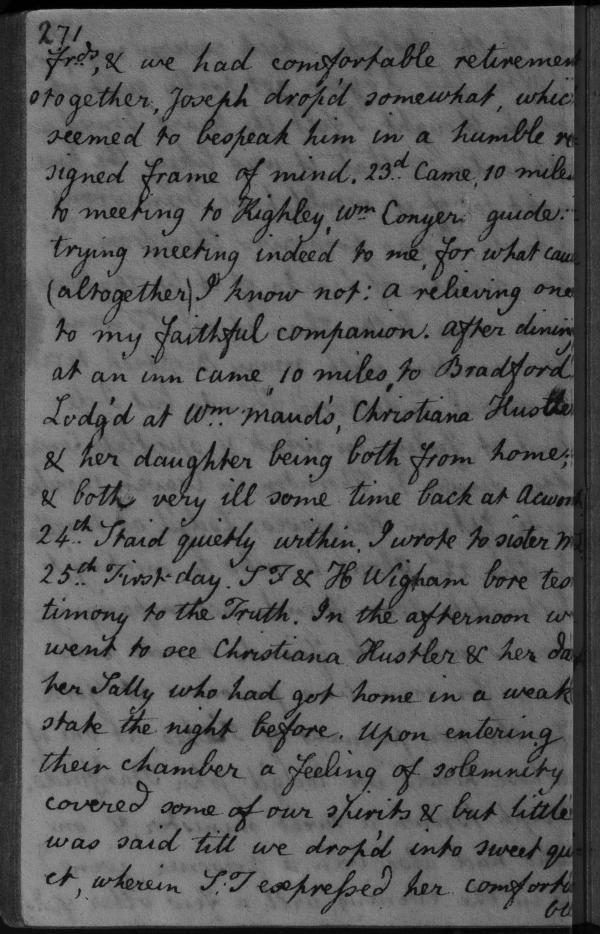 271
frds, & we had comfortable retiremen
together, Joseph drop'd somewhat, whic
seemed to bespeak him in a humble re
signed frame of mind. 23d Came, 10 miles
to meeting to Kighley, Wm Conyer guide:
trying meeting indeed to me, for what caus
(altogether) I know not: a relieving one
to my faithful companion. after dining
at an inn came, 10 miles, to Bradford
Lodg'd at Wm. Maud's, Christiana Hustler
& her daughter being both from home;
& both very ill some time back at Acworth
24th Staid quietly within. I wrote to sister
25th First-day. S T & H Wigham bore tes
timony to the Truth. In the afternoon w
went to see Christiana Hustler & her da
ter Sally who had got home in a weak
state the night before. Upon entering
their chamber a feeling of solemnity
covered some of our spirits & but little
was said till we drop'd into sweet qui
et, wherein S. T expressed her comforta